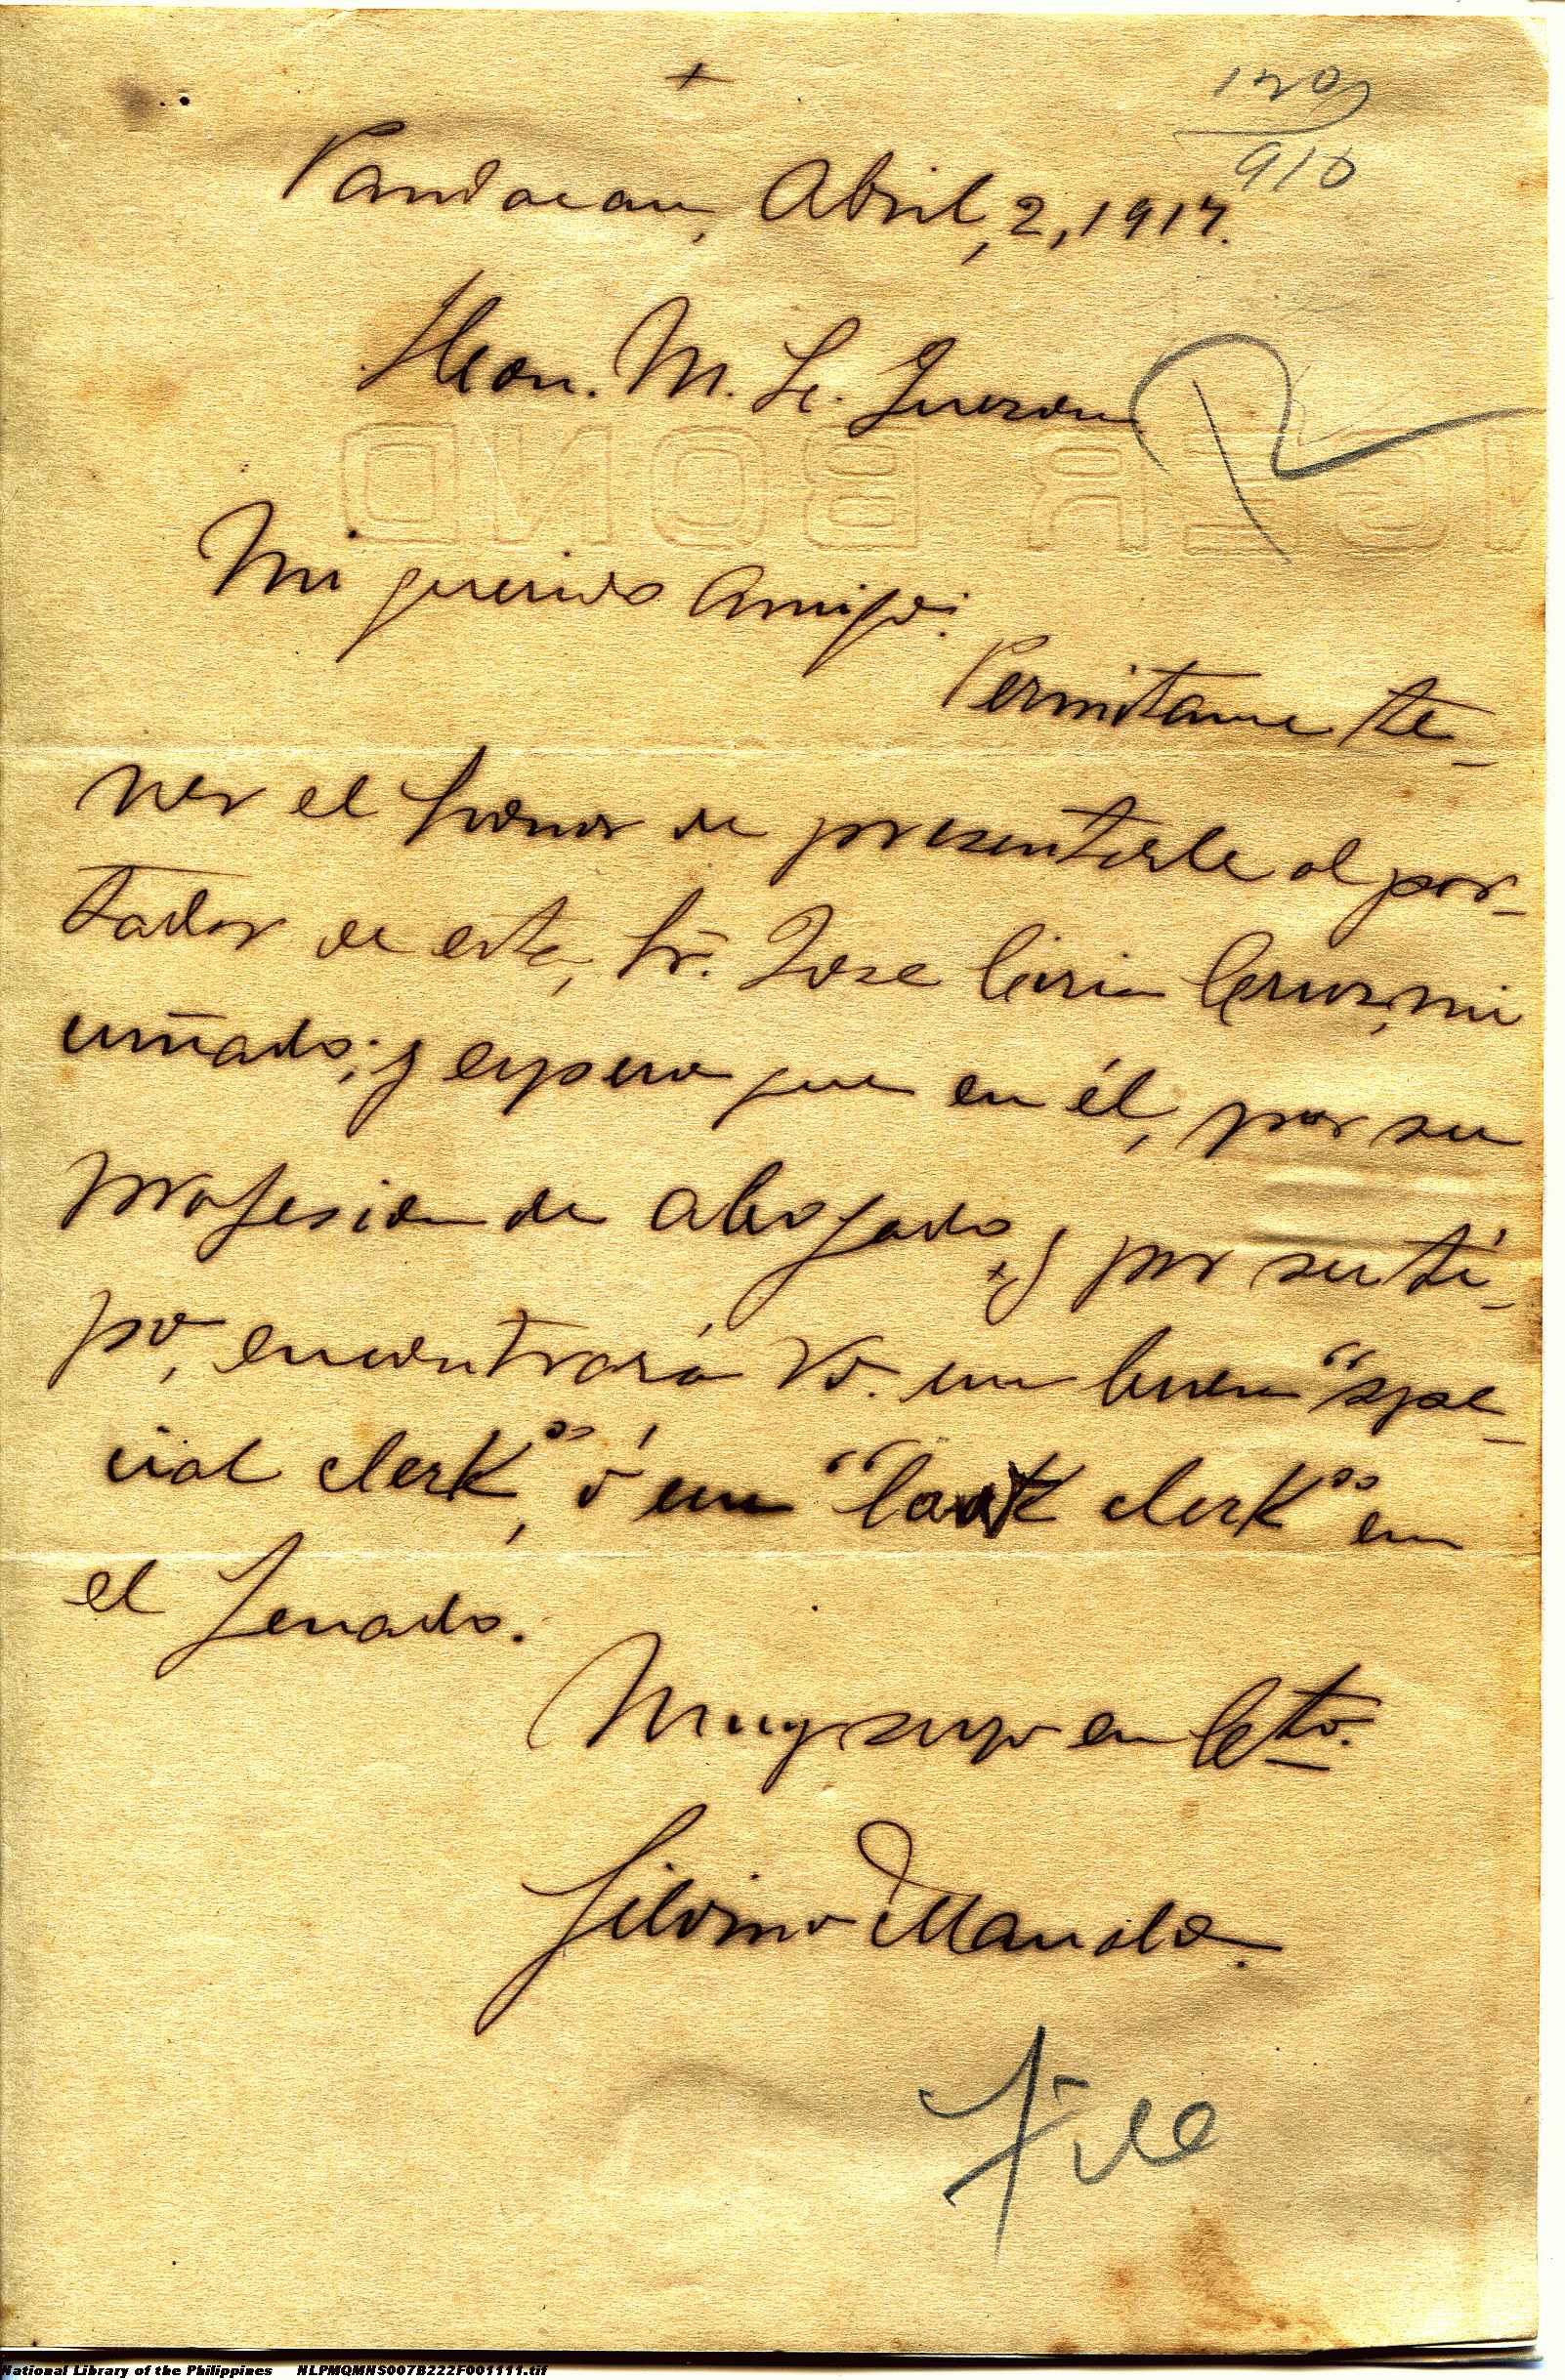 Pandacan, Abril, 2, 1917.
Hon. M. L. Quezon
NGER BOND
Mi querido amigo:
Permitame te-
ner el honor de presentarle al por-
tador de esta, Sr. Jose Ciria Cruz, mi
cuñado; y espero que en él, por su
profesion de abogado, y por su ti-
po, encontrará Vd. un buen "spe-
cial clerk", ó un clerk" en
el Senado.
Muy suyo en Cto.
Silvino Manalo.
File
National Library of the Philippines NLPMQMNS007B222F001111.tif